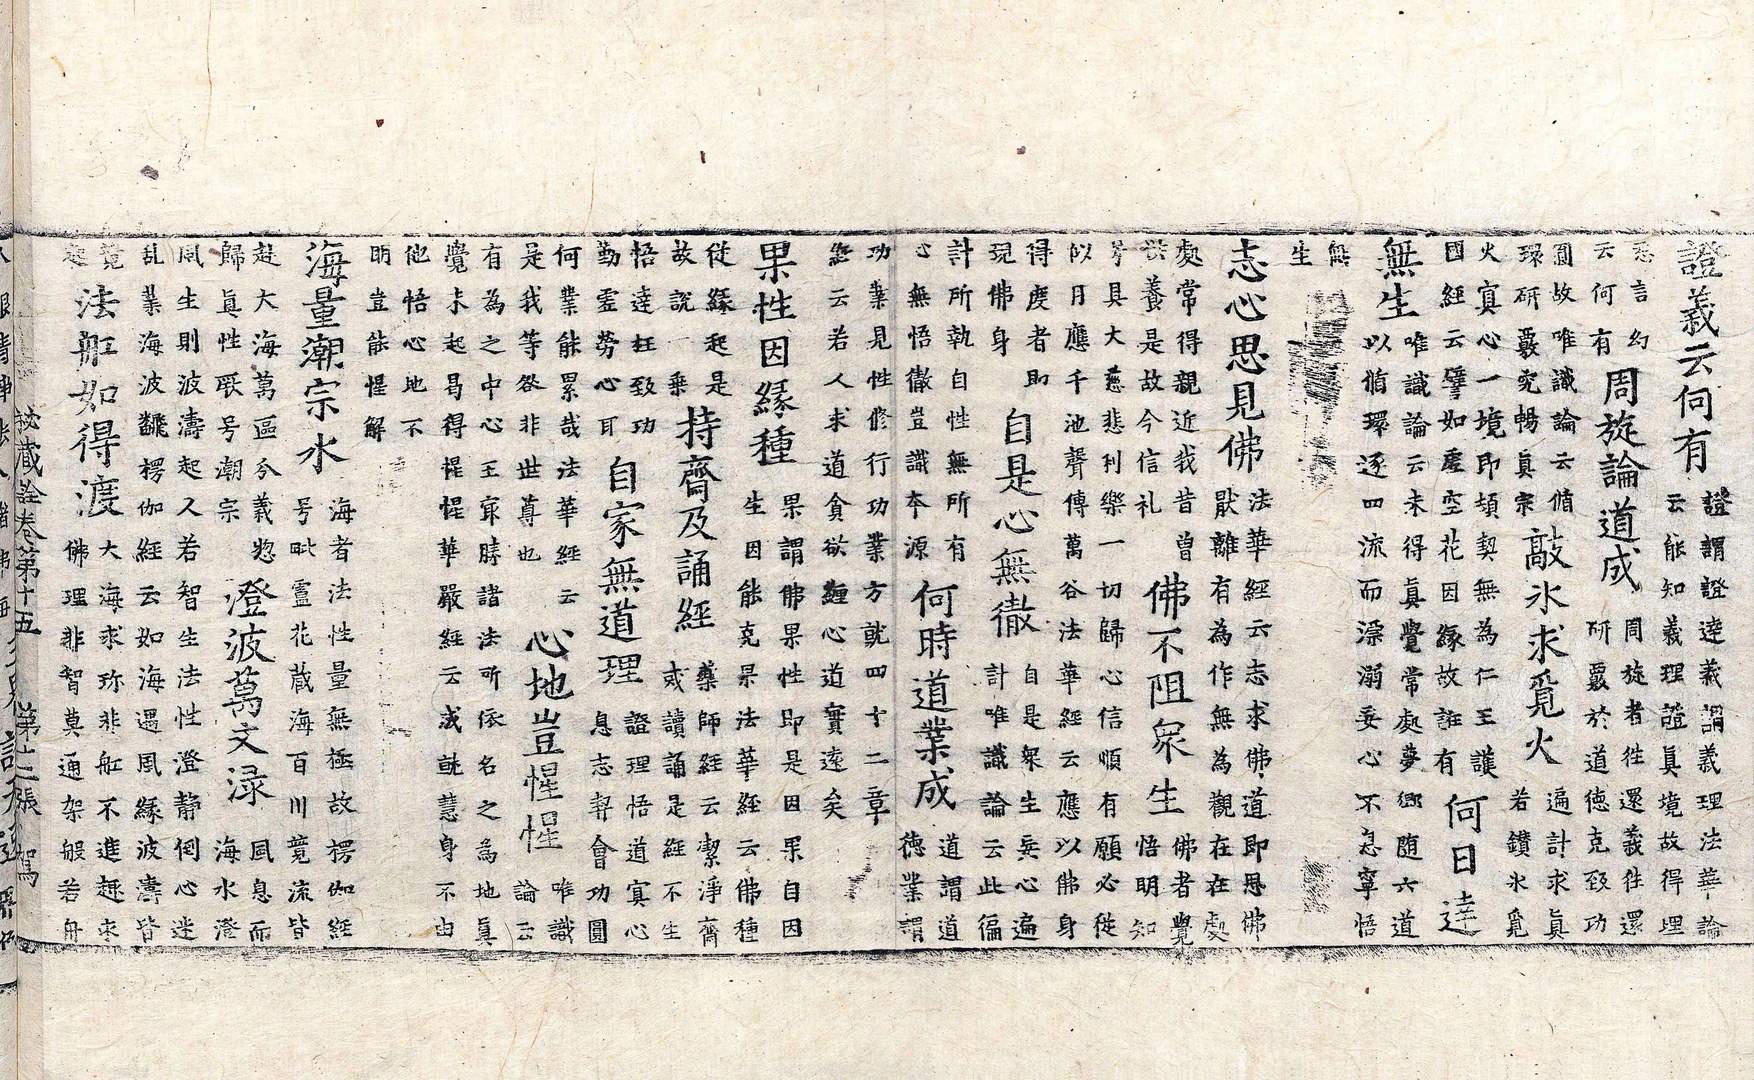 證義云何有 證謂證達義謂義理法華論
云能知義理證真境故得理
悉言幻
云何有 周旋論道成 周旋者徃還義徃還
研覈於道德克致功
圓故唯識論云循
環研覈究暢真宗 敲氷求覓火 遍計求真
若鑚氷覓
火㝠心一境即頓契無為仁王護
國經云譬如虛空花因緣故誑有 何日達
無生 唯識論云未得真覺常處夢鄉随六道
以循環逐四流而漂溺妄心不息寧悟
無
生
志心思見佛 法華經云志求佛道即思佛
猒離有為作無為觀在在處
處常得親近我昔曾
供養是故今信礼 佛不阻衆生 佛者覺
悟明知
等具大慈悲利樂一切歸心信順有願必從
似月應千池聲傳萬谷法華經云應以佛身
得度者即
現佛身 自是心無徹 自是衆生妄心遍
計唯識論云此徧
計所執自性無所有
心無悟徹豈識夲源 何時道業成 道謂道
德業謂
功業見性修行功業方就四十二章
經云若人求道貪欲纏心道實遠矣
果性因緣種 果謂佛果性即是因果自因
生因能克果法華經云佛種
從緣起是
故說一乗 持齋及誦經 藥師經云潔淨齋
或讀誦是經不生
悟達枉致功
勤虛勞心耳 自家無道理 證理悟道㝠心
息志契會功圓
何業能累哉法華經云
是我等咎非世尊也 心地豈惺惺 唯識
論云
有為之中心王㝡勝諸法所依名之為地真
覺未起曷得惺惺華嚴經云成就慧身不由
他悟心地不
明豈能惺解
海量潮宗水 海者法性量無極故楞伽經
号毗盧花蔵海百川竟流皆
趍大海萬區分義惣
歸真性厭号潮宗 澄波萬丈渌 風息而
海水澄
風生則波濤起人若智生法性澄静倒心迷
乱業海波飜楞伽經云如海遇風緣波濤皆
竟
起 法舡如得渡 大海求珎非舡不進趣求
佛理非智莫通架般若舟
秘藏詮卷第十五 第十二張 駕